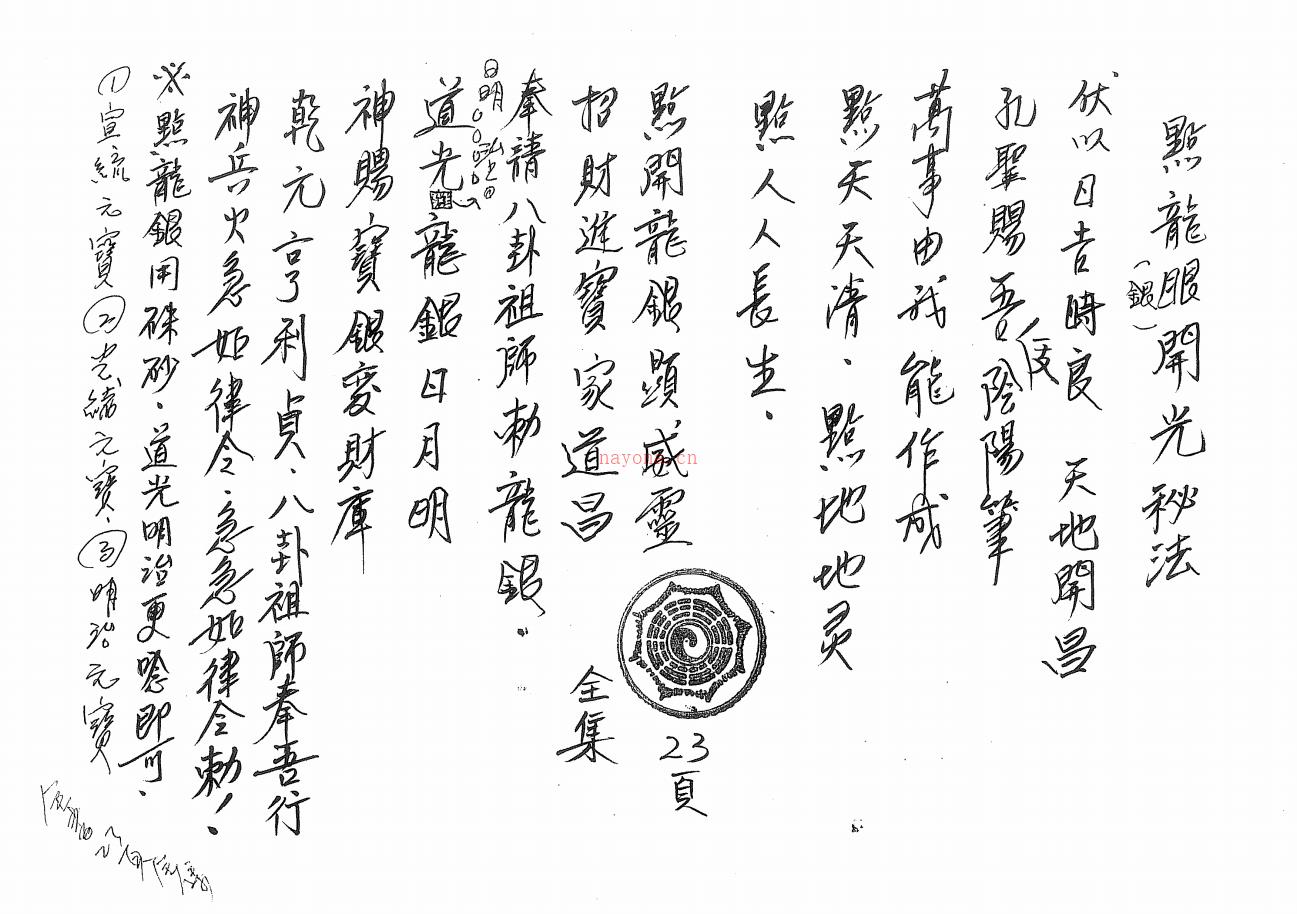 點龍眼開光秘法
(銀)
伏以日吉時良 天地開昌
孔聖賜吾陰陽筆
支
萬事由我能作成
點天天清、點地地灵
點人人長生.
點開龍銀顯威靈
招財進寶家道昌
奉請八卦祖師勅龍銀.
日明
道光龍銀日月明
神賜寶銀変財庫
乾元亨利貞、八卦祖師奉吾行
神兵火急如律令、急急如律令勅!
※點龍銀用硃砂、道光明治更唸即可.
①宣統元寶②光緒元寶、③明治元寶
23頁
全集
nayona.cn